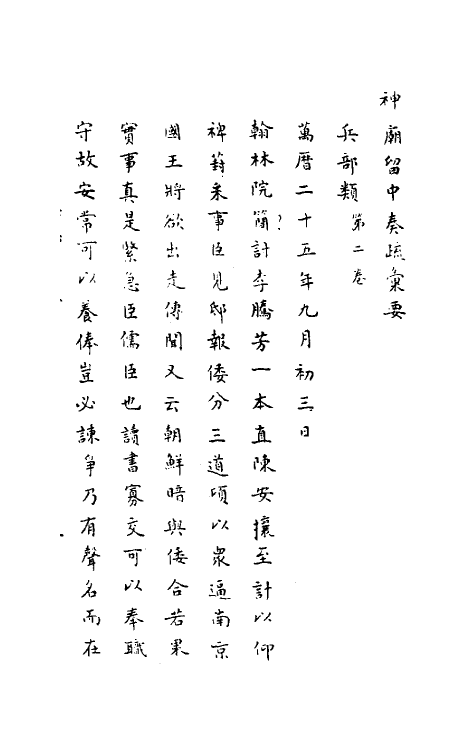 神廟留中奏疏彙要
兵部類 第二卷
萬曆二十五年九月初三日
翰林院簡計李騰芳一本直陳安攘至計以仰
裨籌釆事臣見邸報倭分三道項以衆逼南京
國王將欲出走傳聞又云朝鮮暗與倭合若果
實事真是緊急臣儒臣也讀書寡交可以奉職
守故安常可以養俸豈必諫爭乃有聲名而在